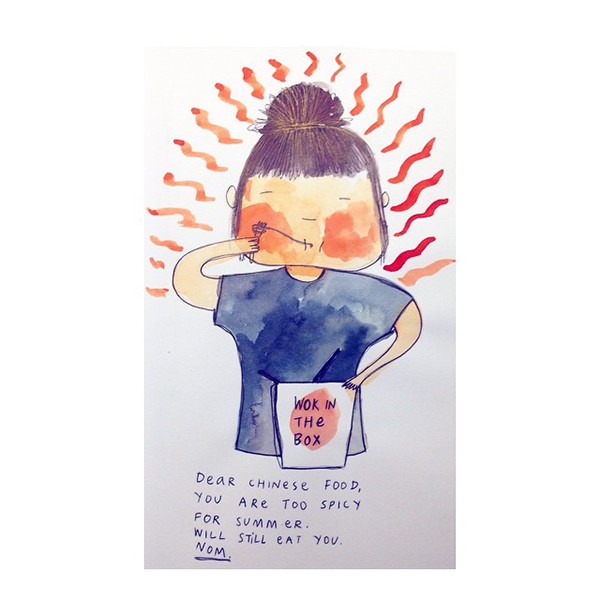 WOK IN
THE
BOX
DEAR CHINESE FOOD,
YOU ARE TOO SPICY
FOR SUMMER.
WILL STILL EAT YOU.
NOM.